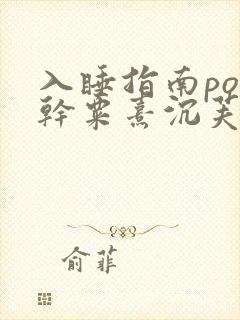 入睡指南po
幹粟熹沉芙
俞菲